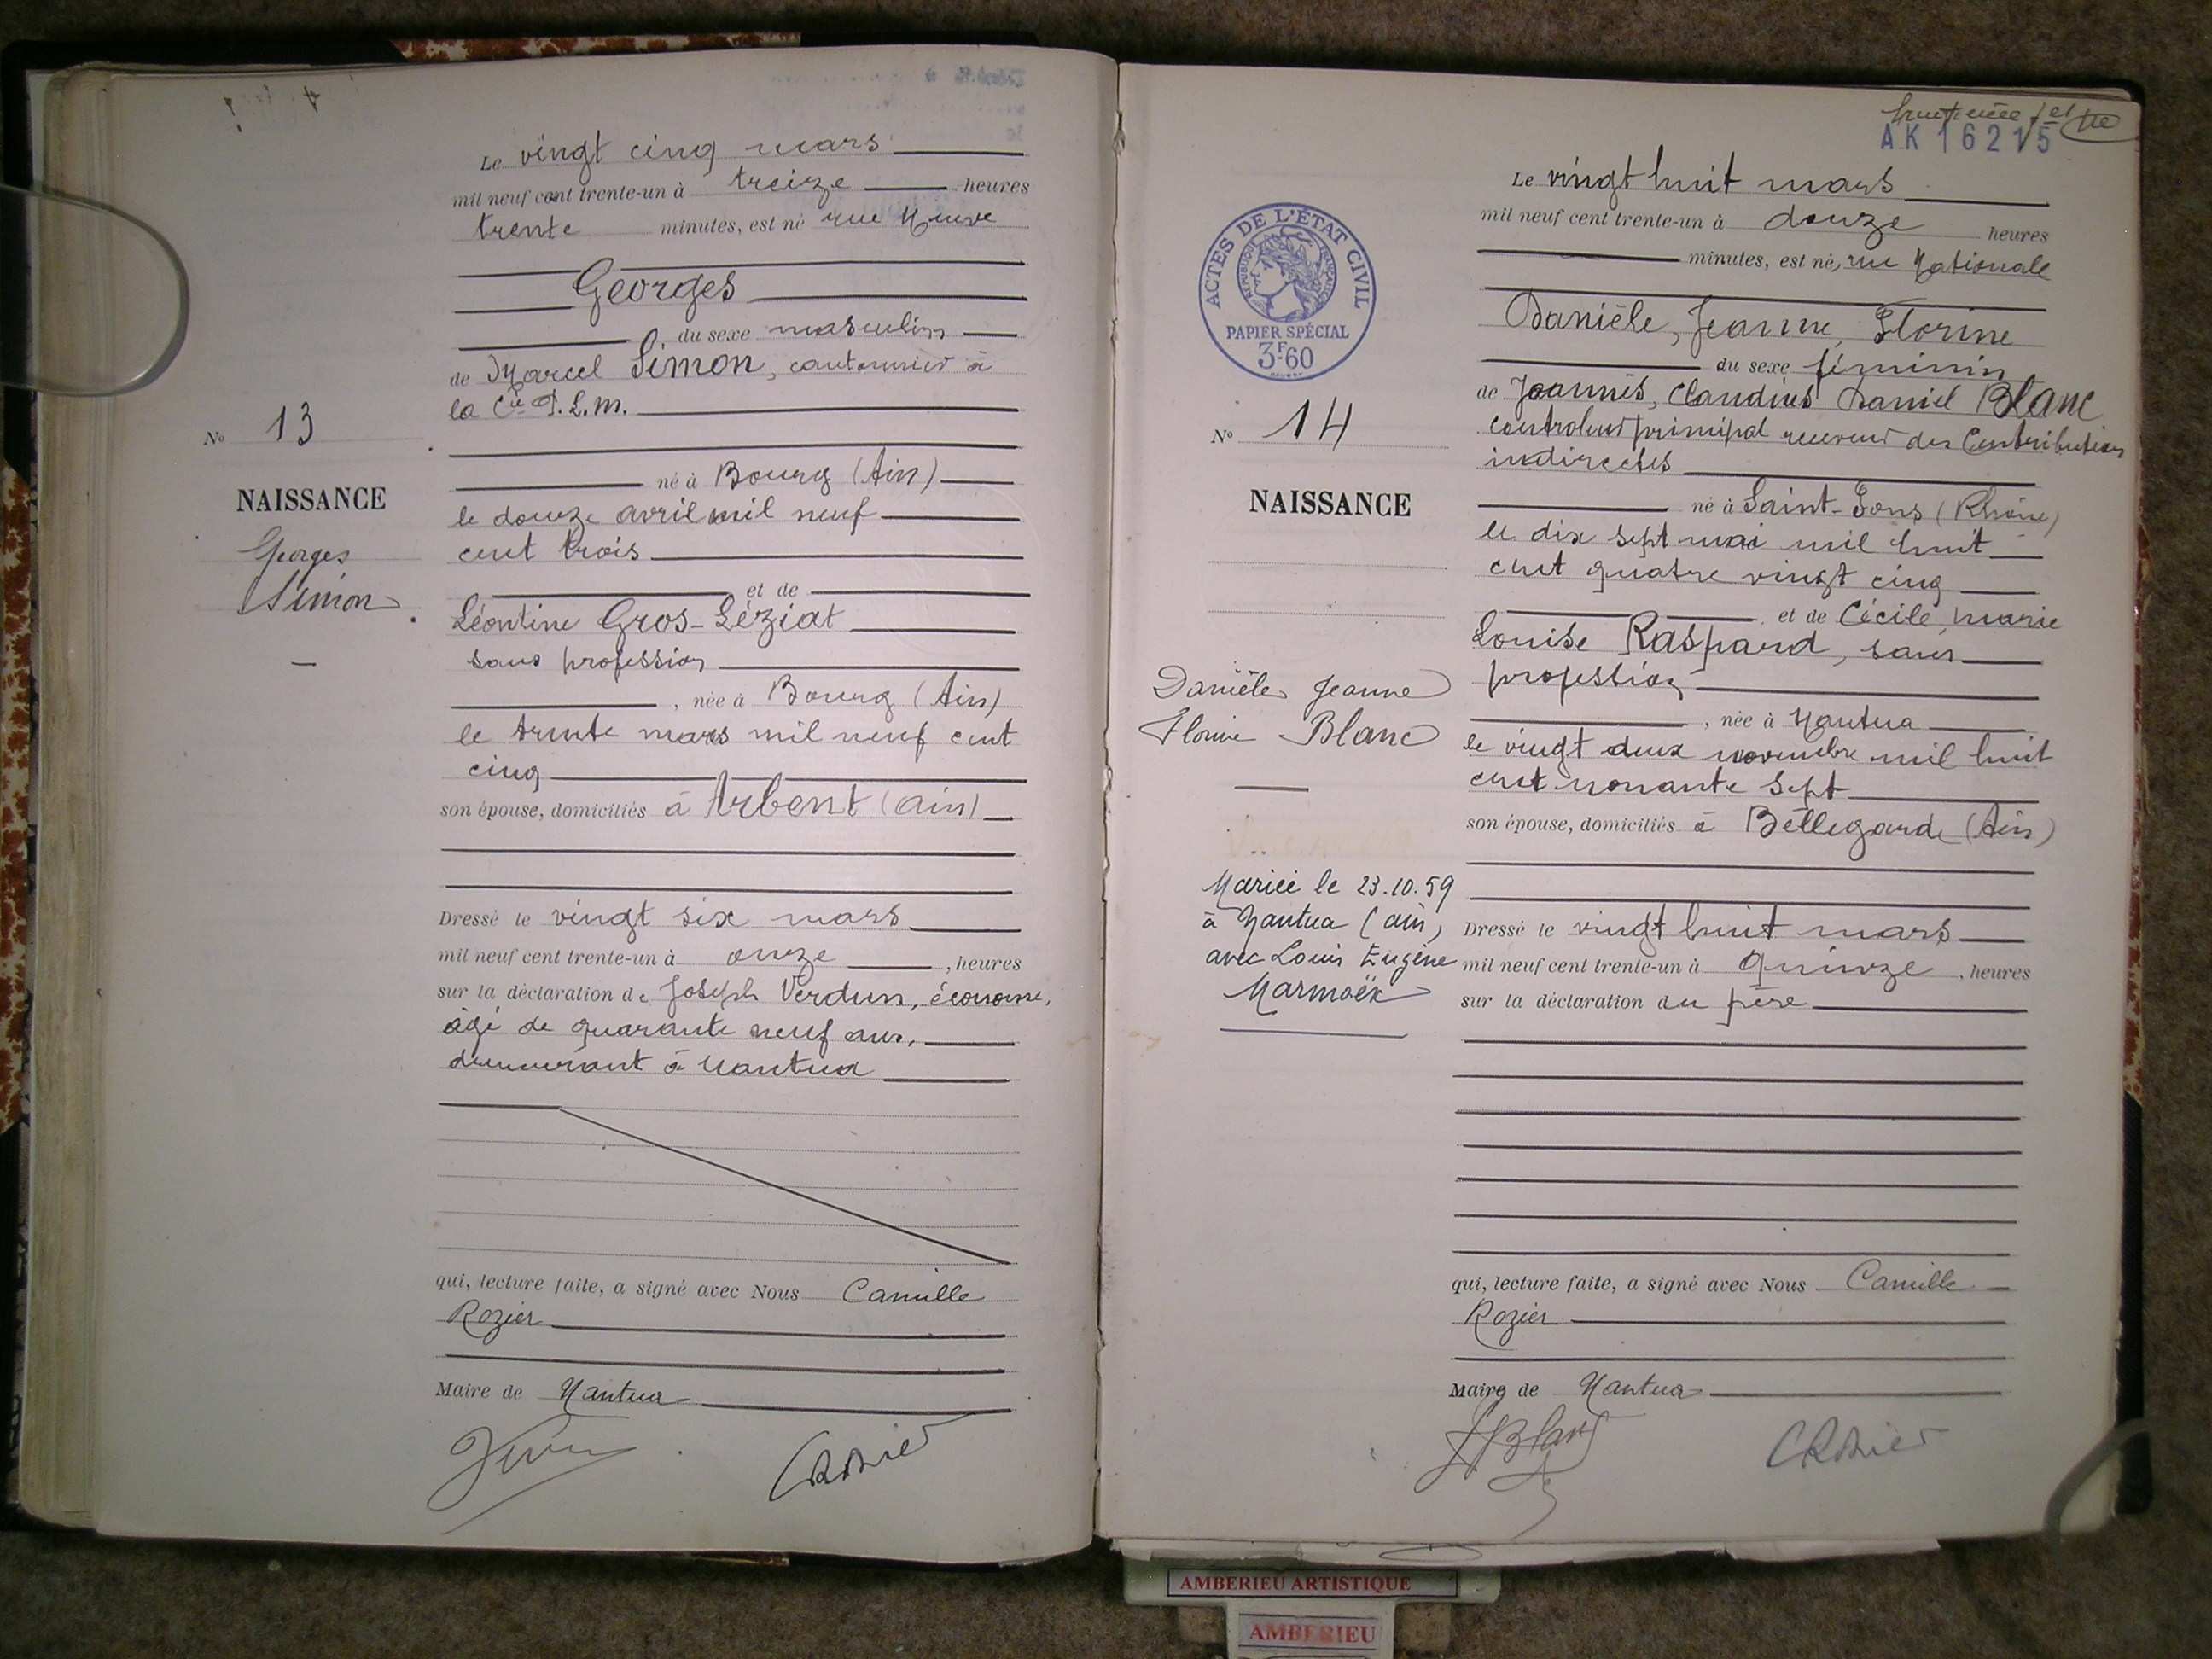 Le vingt cinq mars
mil neuf cent trente-un à treize heures
trente minutes, est né rue Neuve
Georges
du sexe masculin
de Marcel Simon, cantonnier à
la Cie P.L.M.
né à Bourg (Ain)
le douze avril mil neuf
cent trois
et de
Léontine Gros-Léziat
sans profession
, née à Bourg (Ain)
le trente mars mil neuf cent
cinq
son épouse, domiciliés à Arbent (Ain)
Dressé le vingt six mars
mil neuf cent trente-un à onze , heures
sur la déclaration de Joseph Verdun, économe,
âgé de quarante neuf ans,
demeurant à Nantua
qui, lecture faite, a signé avec Nous Camille
Rozier
Maire de Nantua
CRozier
No 13
NAISSANCE
Georges
Simon
huitième fet
AK 16215
ACTES DE L'ÉTAT CIVIL
RÉPUBLIQUE FRANÇAISE
PAPIER SPÉCIAL
3F60
Le vingt huit mars
mil neuf cent trente-un à douze heures
minutes, est né, rue Nationale
Danièle, Jeanne, Florine
du sexe féminin
de Joannès, Claudius Daniel Blanc
controleur principal receveur des Contributions
indirectes
né à Saint-Fons (Rhône)
le dix sept mai mil huit
cent quatre vingt cinq
et de Cécile, Marie
Louise Raspard, sans
profession
, née à Nantua
le vingt deux novembre mil huit
cent nonante sept
son épouse, domiciliés à Bellegarde (Ain)
Dressé le vingt huit mars
mil neuf cent trente-un à quinze , heures
sur la déclaration du père
qui, lecture faite, a signé avec Nous Camille
Rozier
Maire de Nantua
JBlanc
CRozier
No 14
NAISSANCE
Danièle Jeanne
Florine Blanc
Mariée le 23.10.59
à Nantua (Ain)
avec Louis Eugène
Marmoëx
AMBERIEU ARTISTIQUE
AMBERIEU